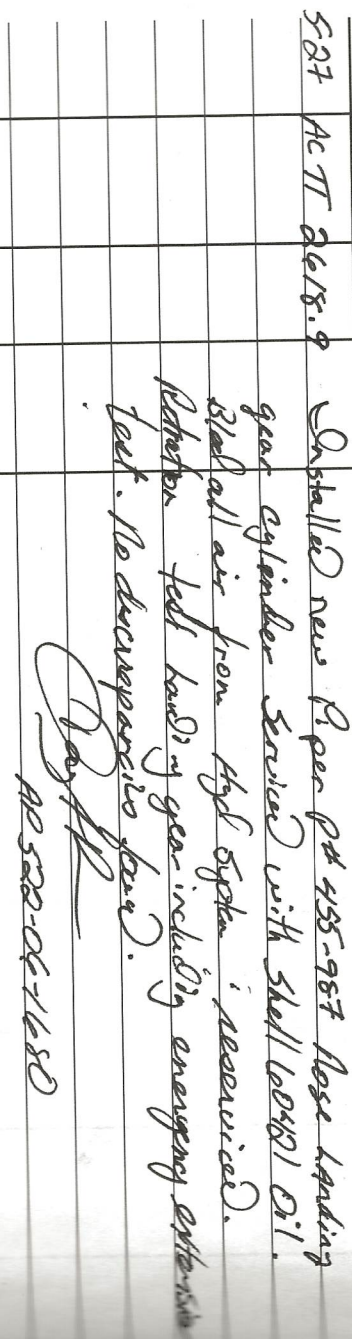 5-27 AC TT 2618.9 Installed new Piper P# 455-987 Nose Landing
gear cylinder Serviced with Shell Oil.
Bled all air from Hyd System reserviced.
test Landing gear including emergency extension
test. No discrepancies found.
AP522-06-1680